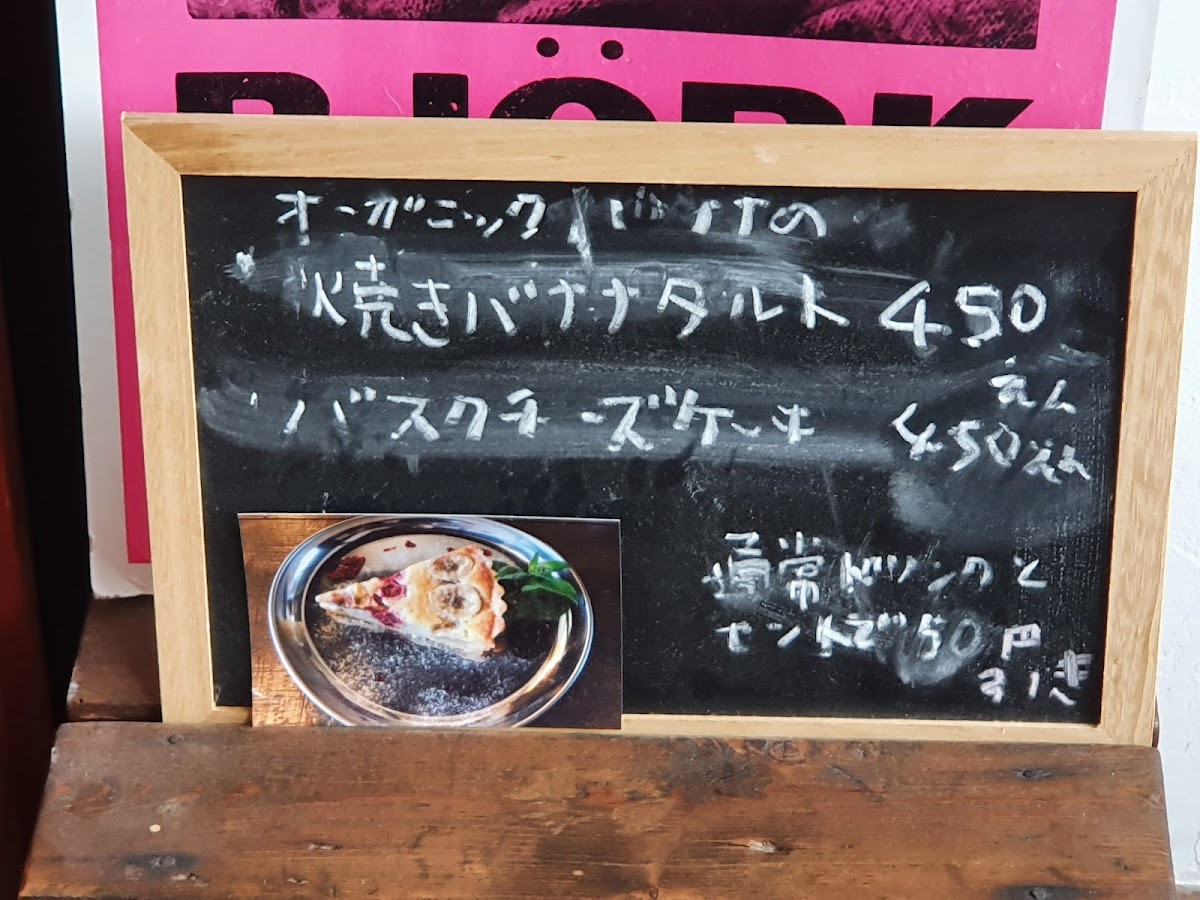 BJÖRK
オーガニックバナナの
焼きバナナタルト 450
えん
バスクチーズケーキ 450えん
通常ドリンクと
セットで50円
引き